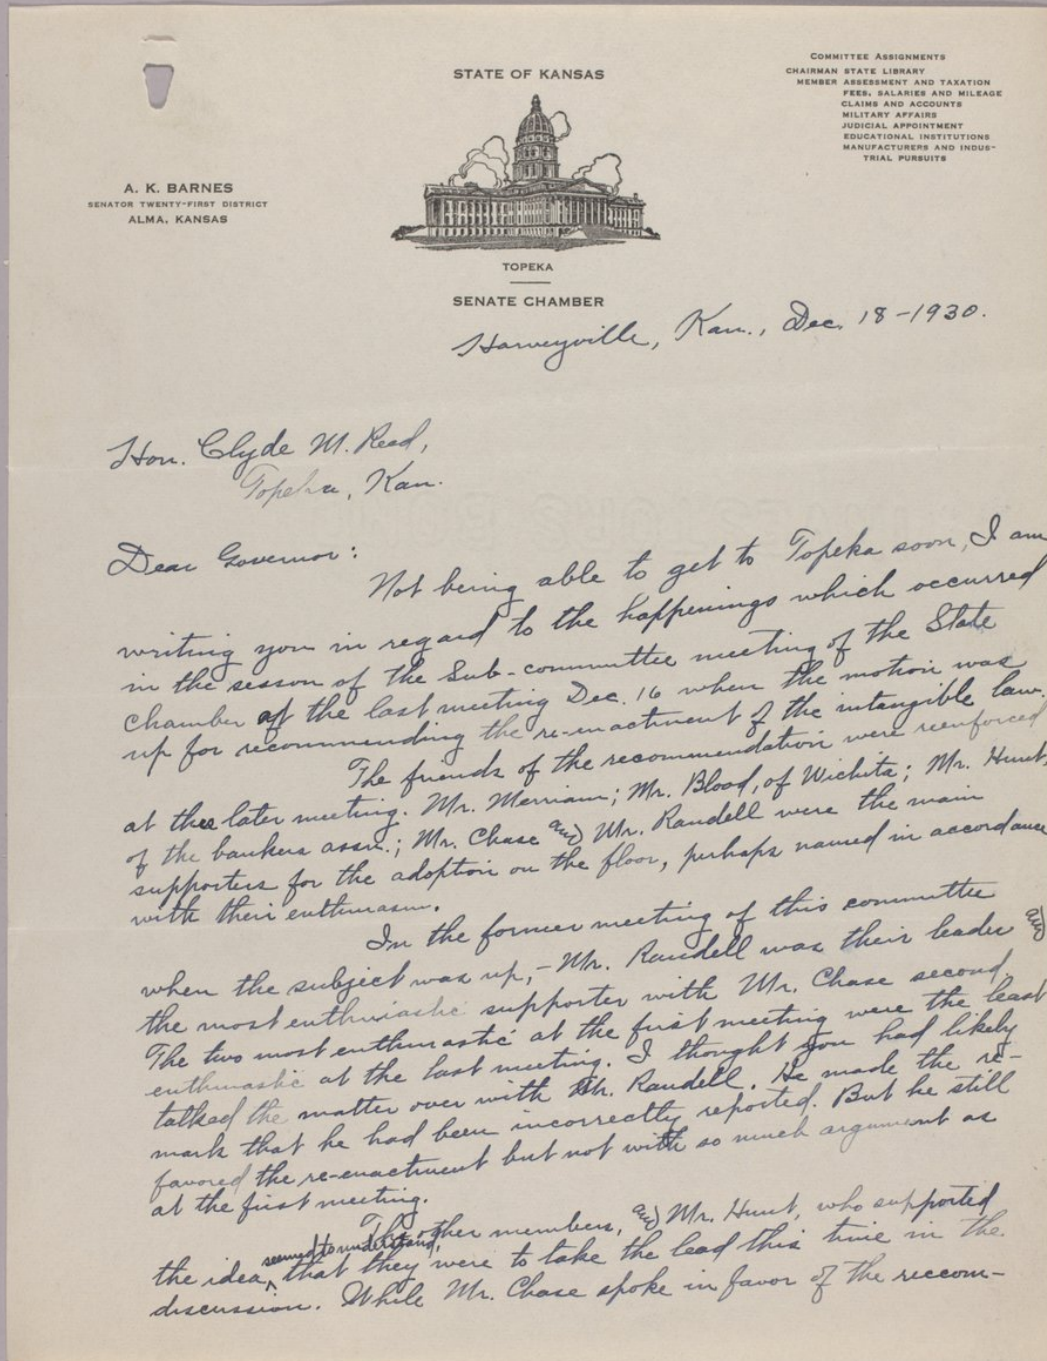 STATE OF KANSAS
COMMITTEE ASSIGNMENTS
CHAIRMAN STATE LIBRARY
MEMBER ASSESSMENT AND TAXATION
FEES, SALARIES AND MILEAGE
CLAIMS AND ACCOUNTS
MILITARY AFFAIRS
JUDICIAL APPOINTMENT
EDUCATIONAL INSTITUTIONS
MANUFACTURERS AND INDUS-
TRIAL PURSUITS
A. K. BARNES
SENATOR TWENTY-FIRST DISTRICT
ALMA, KANSAS
TOPEKA
SENATE CHAMBER
Harveyville, Kan., Dec. 18-1930.
Hon. Clyde M. Reed,
Topeka, Kan.
Dear Governor:
Not being able to get to Topeka soon, I am
writing you in regard to the happenings which occurred
in the sesson of the Sub-committee meeting of the State
Chamber at the last meeting Dec. 16 when the motion was
up for recommending the re-enactment of the intangible law.
The friends of the recommendation were reenforced
at the later meeting. Mr. Merriam; Mr. Blood, of Wichita; Mr. Hunt,
of the bankers assn.; Mr. Chase and Mr. Randell were the main
supporters for the adoption on the floor, perhaps named in accordance
with their enthusiasm.
In the former meeting of this committee
when the subject was up,- Mr. Randell was their leader and
the most enthusiastic supporter with Mr. Chase second.
The two most enthusiastic at the first meeting were the least
enthusiastic at the last meeting. I thought you had likely
talked the matter over with Mr. Randell. He made the re-
mark that he had been incorrectly reported. But he still
favored the re-enactment but not with so much argument as
at the first meeting.
The other members, and Mr. Hunt, who supported
the idea, seemed to understand, that they were to take the lead this time in the
discussion. While Mr. Chase spoke in favor of the reccom-